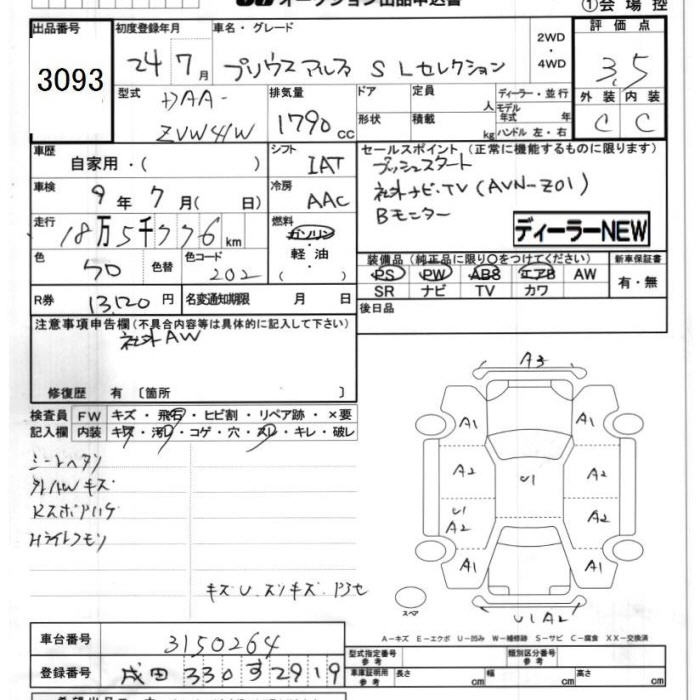 オークション出品申込書
①会場控
出品番号 3093
初度登録年月 24 7月
車名・グレード プリウスアルファ S Lセレクション
2WD ・ 4WD
評価点 3.5
外装 内装 C C
型式 DAA- ZVW41W
排気量 1790 cc
ドア 形状
定員 人 積載 kg
ディーラー・並行
モデル年式 年
ハンドル 左・右
車歴 自家用・( )
シフト IAT
車検 9年 7月( 日)
冷房 AAC
走行 18万5千776 km
燃料 ガソリン ・ 軽油
色 色替 色コード 202
R券 13,120円
名変通知期限 月 日
セールスポイント (正常に機能するものに限ります)
プッシュスタート
社外ナビ・TV (AVN-Z01)
Bモニター
ディーラーNEW
装備品 (純正品に限り○をつけてください)
PS PW ABS エアB AW
SR ナビ TV カワ
新車保証書 有・無
後日品
注意事項申告欄(不具合内容等は具体的に記入して下さい)
社外AW
修復歴 有 〔箇所 〕
検査員 記入欄
FW キズ・飛石・ヒビ割・リペア跡・×要
内装 キズ・汚レ・コゲ・穴・スレ・キレ・破レ
シートヘタリ
外AWキズ
RスポアリG
Hライトクモリ
キズU.スリキズ.
A3
A1 A1
A2 U1 A2
U1 A2 A2
A1 A1
スペア
U1 A2
A-キズ E-エクボ U-凹み W-補修跡 S-サビ C-腐食 XX-交換済
車台番号 3150264
登録番号 成田 330 す 2919
型式指定番号 参考
類別区分番号 参考
車庫証明用 参考 長さ cm 幅 cm 高さ cm